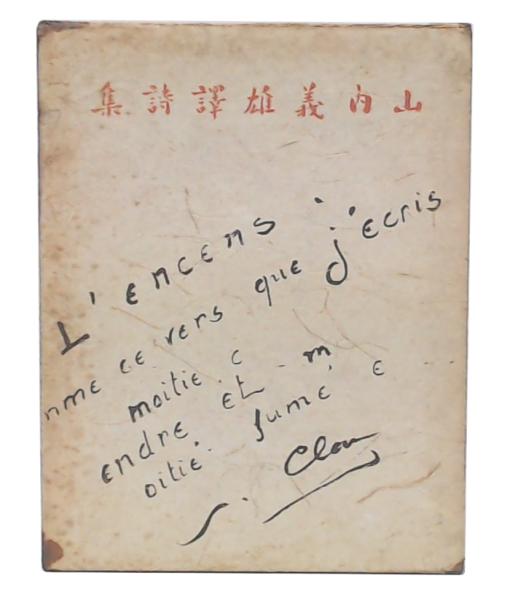 山内義雄譯詩集
L'encens
nme ce vers que j'ecris
moitie c
endre et m
oitie fumé e
Clau